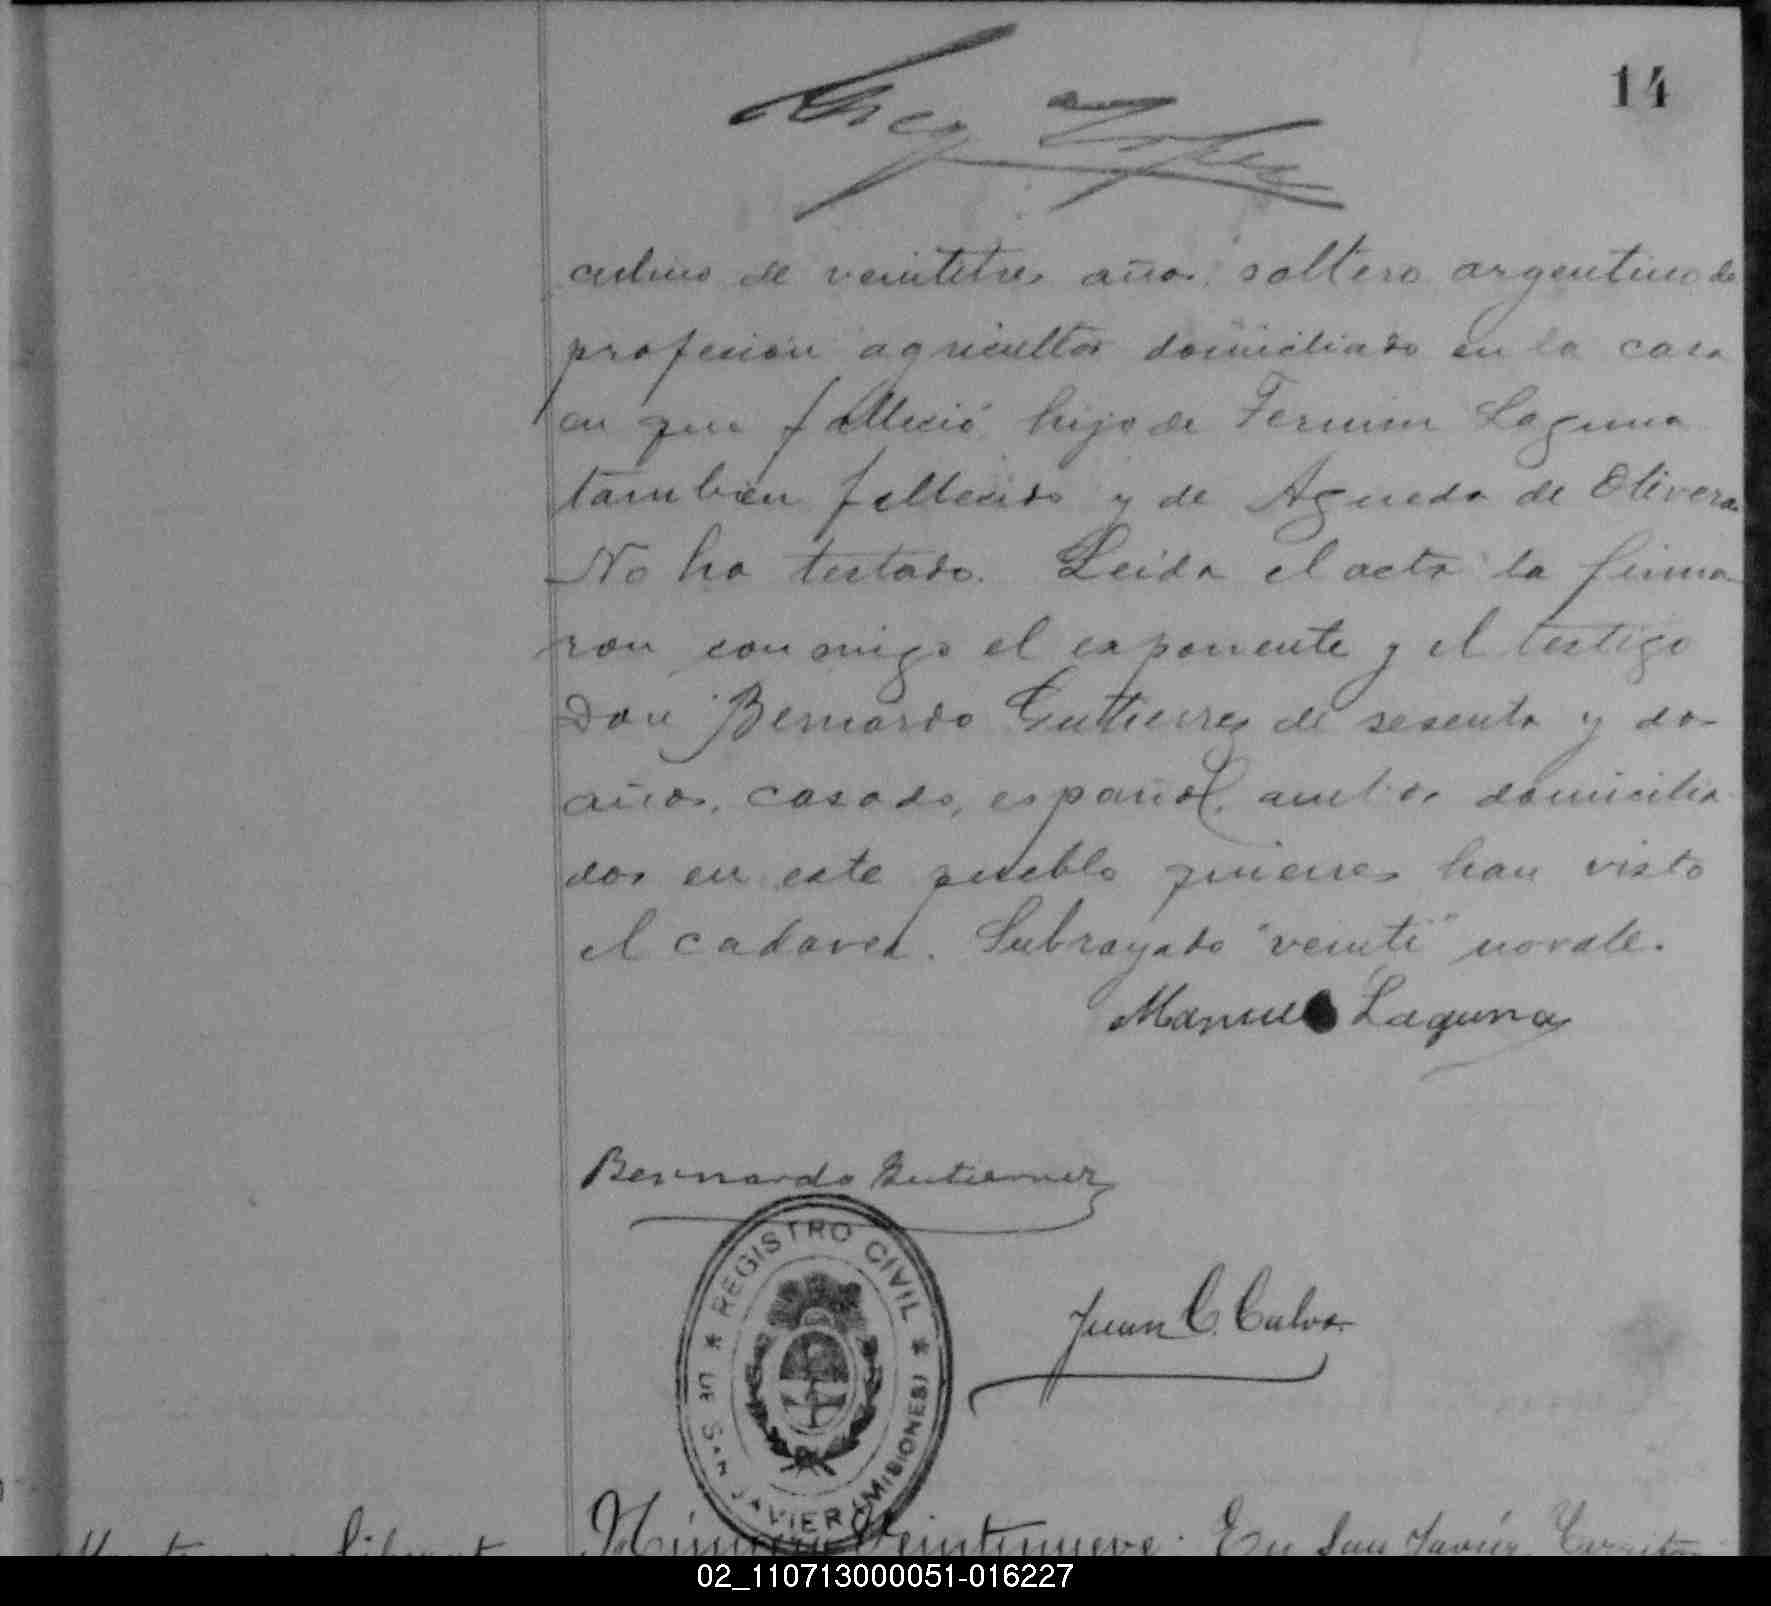 14
culino de veintitres años, soltero argentino de
profesion agricultor domiciliado en la casa
en que falleció, hijo de Fermin Laguna
tambien fallecido y de Agueda de Olivera.
No ha testado. Leida el acta la firma
ron conmigo el exponente y el testigo
Don Bernardo Gutierrez de sesenta y dos
años, casado, español, ambos domicilia
dos en este pueblo quienes han visto
el cadaver. Subrayado "veinti" no vale.
Manuel Laguna
Bernardo Gutierrez
REGISTRO CIVIL
DE SAN JAVIER (MISIONES)
Juan C. Calvo
Número Veintinueve. En San Javier, Territo
02_110713000051-016227